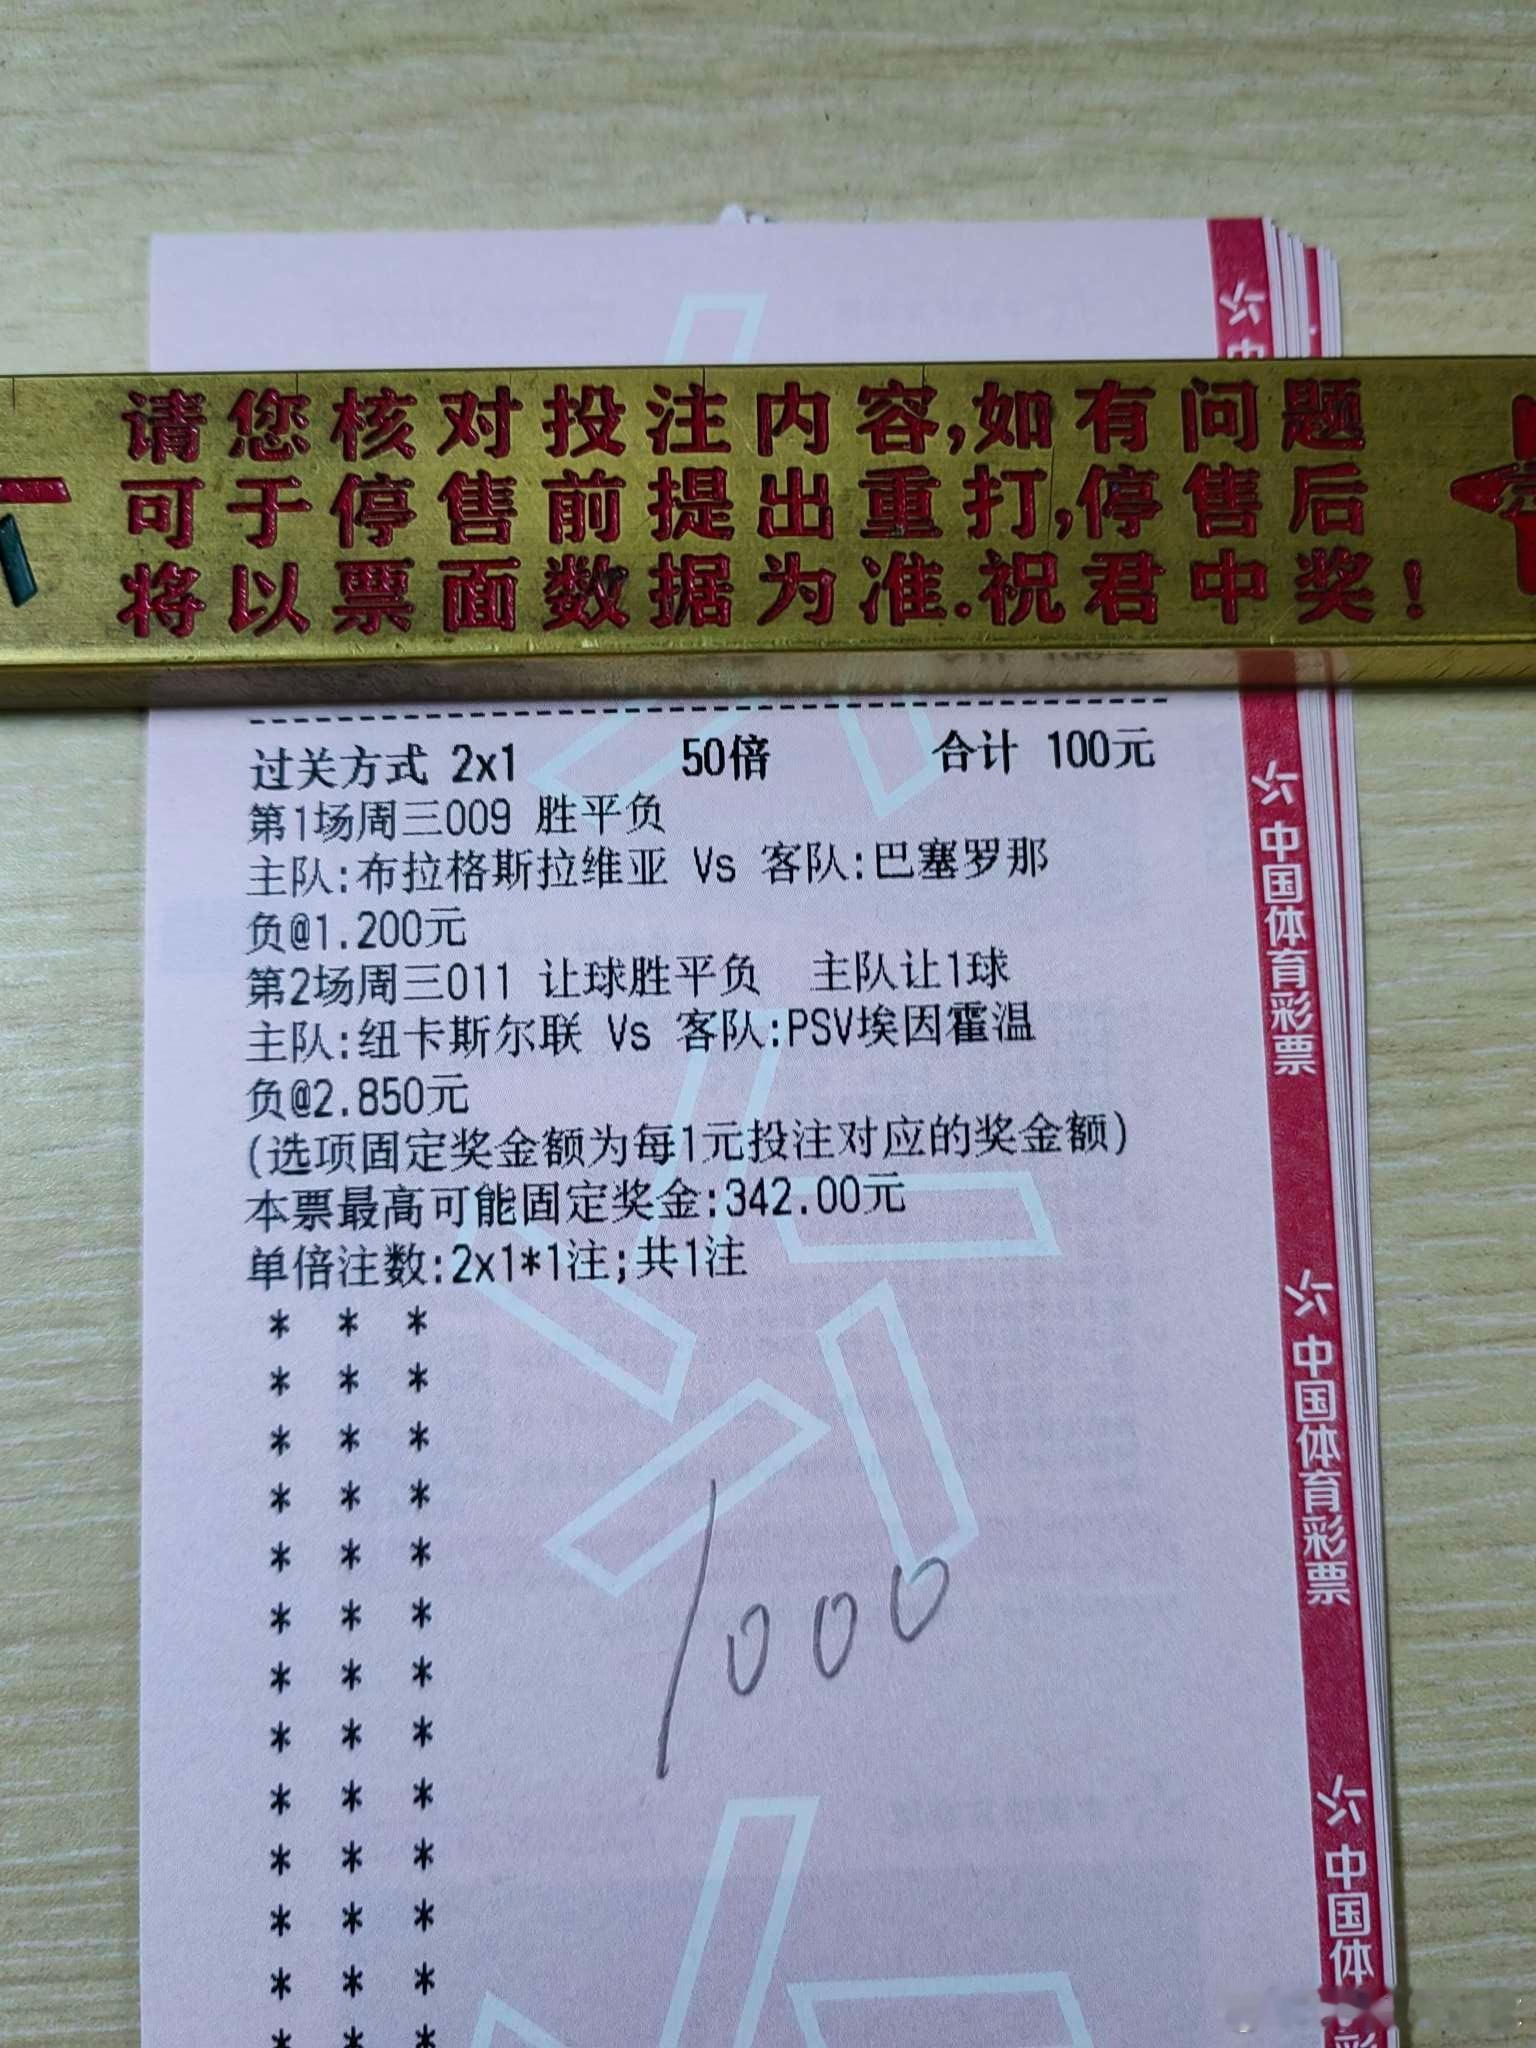 请您核对投注内容,如有问题
可于停售前提出重打,停售后
将以票面数据为准.祝君中奖!
过关方式 2x1 50倍 合计 100元
第1场周三009 胜平负
主队:布拉格斯拉维亚 Vs 客队:巴塞罗那
负@1.200元
第2场周三011 让球胜平负 主队让1球
主队:纽卡斯尔联 Vs 客队:PSV埃因霍温
负@2.850元
(选项固定奖金额为每1元投注对应的奖金额)
本票最高可能固定奖金:342.00元
单倍注数:2x1*1注;共1注
* * *
* * *
* * *
* * *
* * *
* * *
* * *
* * *
* * *
* * *
* * *
* * *
* * *
1000
中
中国体育彩票
中国体育彩票
中国体彩